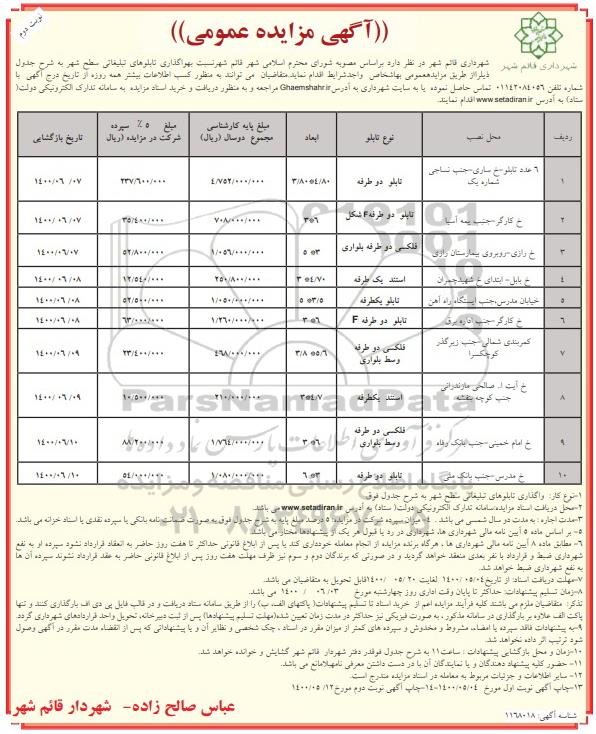 نوبت دوم
((آگهی مزایده عمومی))
شهرداری قائم شهر
شهرداری قائم شهر در نظر دارد براساس مصوبه شورای محترم اسلامی شهر قائم شهرنسبت بهواگذاری تابلوهای تبلیغاتی سطح شهر به شرح جدول
ذیلراز طریق مزایدهعمومی بهاشخاص واجدشرایط اقدام نماید.متقاضیان می توانند به منظور کسب اطلاعات بیشتر همه روزه از تاریخ درج آگهی با
شماره تلفن ۰۱۱۴۲۰۸۴۰۵۶ تماس حاصل نموده یا به سایت شهرداری به آدرسGhaemshahr.ir مراجعه و به منظور دریافت و خرید اسناد مزایده به سامانه تدارک الکترونیکی دولت(
ستاد) به آدرس www.setadiran.ir اقدام نمایند.
ردیف محل نصب نوع تابلو ابعاد مبلغ پایه کارشناسی مجموع دوسال (ریال) مبلغ ۵٪ سپرده شرکت در مزایده (ریال) تاریخ بازگشایی
۱ ۶ عدد تابلو-خ ساری-جنب نساجی شماره یک تابلو دو طرفه ۳/۸۰*۴/۸۰ ۴/۷۵۲/۰۰۰/۰۰۰ ۲۳۷/۶۰۰/۰۰۰ ۱۴۰۰/۰۶/۰۷
۲ خ کارگر-جنب بیمه آسیا تابلو دو طرفهF شکل ۳*۶ ۷۰۸/۰۰۰/۰۰۰ ۳۵/۴۰۰/۰۰۰ ۱۴۰۰/۰۶/۰۷
۳ خ رازی-روبروی بیمارستان رازی فلکسی دو طرفه بلواری ۵*۳ ۱/۰۵۶/۰۰۰/۰۰۰ ۵۲/۸۰۰/۰۰۰ ۱۴۰۰/۰۶/۰۷
۴ خ بابل- ابتدای خ شهیدچمران استند یک طرفه ۳*۴/۷۰ ۲۵۰/۸۰۰/۰۰۰ ۱۲/۵۴۰/۰۰۰ ۱۴۰۰/۰۶/۰۸
۵ خیابان مدرس،جنب ایستگاه راه آهن تابلو یکطرفه ۵*۳/۵ ۱/۰۵۰/۰۰۰/۰۰۰ ۵۲/۵۰۰/۰۰۰ ۱۴۰۰/۰۶/۰۸
۶ خ کارگر-جنب اداره برق تابلو دو طرفه F ۳*۶ ۱/۲۶۰/۰۰۰/۰۰۰ ۶۳/۰۰۰/۰۰۰ ۱۴۰۰/۰۶/۰۸
۷ کمربندی شمالی-جنب زیرگذر کوچکسرا فلکسی دو طرفه وسط بلواری ۳/۸*۵/۶ ۴۶۸/۰۰۰/۰۰۰ ۲۳/۴۰۰/۰۰۰ ۱۴۰۰/۰۶/۰۹
۸ خ آیت ا.. صالحی مازندرانی جنب کوچه بنفشه استند یکطرفه ۳*۴/۷ ۲۱۰/۰۰۰/۰۰۰ ۱۰/۵۰۰/۰۰۰ ۱۴۰۰/۰۶/۰۹
۹ خ امام خمینی-جنب بانک رفاه فلکسی دو طرفه وسط بلواری ۳*۶ ۱/۷۶۴/۰۰۰/۰۰۰ ۸۸/۲۰۰/۰۰۰ ۱۴۰۰/۰۶/۱۰
۱۰ خ مدرس-جنب بانک ملی تابلو دو طرفه ۶*۳ ۱/۰۸۰/۰۰۰/۰۰۰ ۵۴/۰۰۰/۰۰۰ ۱۴۰۰/۰۶/۱۰
ParsNamadData
۱-نوع کار: واگذاری تابلوهای تبلیغاتی سطح شهر به شرح جدول فوق
۲-محل دریافت اسناد مزایده:سامانه تدارک الکترونیکی دولت( ستاد) به آدرس www.setadiran.ir می باشد.
۳-مدت اجاره : به مدت دو سال شمسی می باشد . ۴- میزان سپرده شرکت در مزایده: ۵ درصد مبلغ پایه به شرح جدول فوق به صورت ضمانت نامه بانکی یا سپرده نقدی یا اسناد خزانه می باشد.
۵- بر اساس ماده ۵ آیین نامه مالی شهرداری ها، شهرداری در رد یا قبول هر یک از پیشنهادها مختار می باشد.
۶- مطابق ماده ۸ آیین نامه مالی شهرداری ها ، هرگاه برنده مزایده از انجام معامله خودداری کند یا پس از ابلاغ قانونی حداکثر تا هفت روز حاضر به انعقاد قرارداد نشود سپرده او به نفع
شهرداری ضبط و قرارداد با نفر بعدی منعقد خواهد گردید و در صورتی که برندگان دوم و سوم نیز ظرف مهلت هفت روز پس از ابلاغ قانونی حاضر به عقد قرارداد نشوند سپرده آن ها
به نفع شهرداری ضبط خواهد شد.
۷-مهلت دریافت اسناد: از تاریخ۱۴۰۰/۰۵/۰۴ لغایت ۰۵/۲۰ /۱۴۰۰قابل تحویل به متقاضیان می باشد.
۸-زمان تسلیم پیشنهادات: حداکثر تا پایان وقت اداری روز چهارشنبه مورخ ۰۶/۰۳ / ۱۴۰۰ می باشد.
تذکر: متقاضیان ملزم می باشند کلیه فرآیند مزایده اعم از خرید اسناد تا تسلیم پیشنهادات( پاکتهای الف، ب) را از طریق سامانه ستاد دریافت و در قالب فایل پی دی اف بارگذاری کنند و تنها
پاکت الف علاوه بر بارگذاری در سامانه مذکور ، به صورت فیزیکی نیز حداکثر در مدت زمان تعیین شده(مهلت تسلیم پیشنهادها) پس از ثبت دبیرخانه، تحویل واحد قراردادهای شهرداری گردد.
۹-به پیشنهادات فاقد سپرده یا امضاء، مشروط و مخدوش و سپرده های کمتر از میزان مقرر در اسناد ، چک شخصی و نظایر آن و یا پیشنهاداتی که پس از انقضاء مدت مقرر در آگهی وصول
شود ترتیب اثر داده نخواهد شد.
۱۰-زمان و محل بازگشایی پیشنهادات : ساعت۱۱ به شرح جدول فوقدر دفتر شهردار قائم شهر گشایش و خوانده خواهد شد.
۱۱- حضور کلیه پیشنهاد دهندگان و یا نمایندگان آن با در دست داشتن معرفی نامهبلامانع می باشد.
۱۲- سایر اطلاعات و جزئیات مربوط به معامله در اسناد مزایده مندرج است.
۱۳-چاپ آگهی نوبت اول مورخ ۱۴۰۰/۰۵/۰۴-۱۴-چاپ آگهی نوبت دوم مورخ۱۲/ ۱۴۰۰/۰۵
عباس صالح زاده- شهردار قائم شهر
شناسه آگهی: ۱۱۶۸۰۱۸